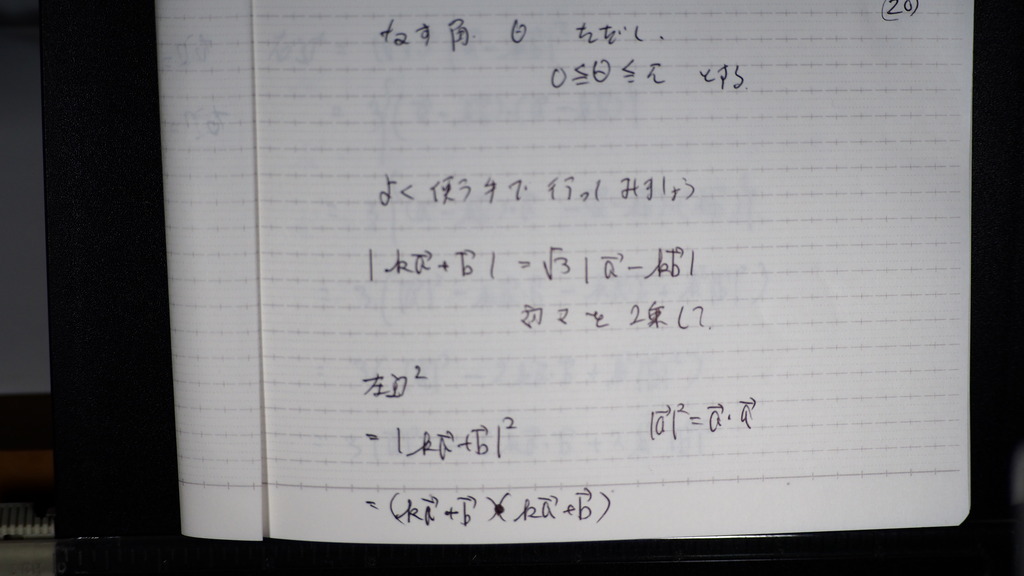 (20)
なす角 θ ただし.
0≦θ≦π とする
よく使う手で行ってみましょう
|ka⃗+b⃗| = √3|a⃗-kb⃗|
両辺を2乗して.
左辺²
= |ka⃗+b⃗|²
|a⃗|²=a⃗・a⃗
= (ka⃗+b⃗)・(ka⃗+b⃗)